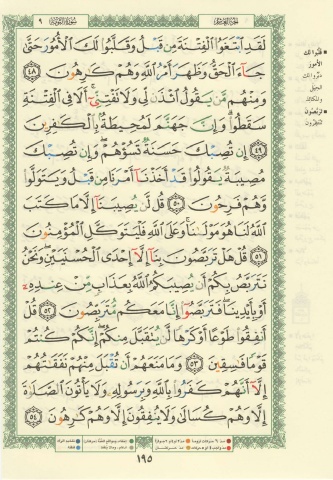 الجزء العاشر
سورة التوبة ٩
لَقَدِ ابْتَغَوُا الْفِتْنَةَ مِن قَبْلُ وَقَلَّبُوا لَكَ الْأُمُورَ حَتَّىٰ
جَاءَ الْحَقُّ وَظَهَرَ أَمْرُ اللَّهِ وَهُمْ كَارِهُونَ ٤٨
وَمِنْهُم مَّن يَقُولُ ائْذَن لِّي وَلَا تَفْتِنِّي أَلَا فِي الْفِتْنَةِ
سَقَطُوا وَإِنَّ جَهَنَّمَ لَمُحِيطَةٌ بِالْكَافِرِينَ
٤٩ إِن تُصِبْكَ حَسَنَةٌ تَسُؤْهُمْ وَإِن تُصِبْكَ
مُصِيبَةٌ يَقُولُوا قَدْ أَخَذْنَا أَمْرَنَا مِن قَبْلُ وَيَتَوَلَّوا
وَّهُمْ فَرِحُونَ ٥٠ قُل لَّن يُصِيبَنَا إِلَّا مَا كَتَبَ
اللَّهُ لَنَا هُوَ مَوْلَانَا وَعَلَى اللَّهِ فَلْيَتَوَكَّلِ الْمُؤْمِنُونَ
٥١ قُلْ هَلْ تَرَبَّصُونَ بِنَا إِلَّا إِحْدَى الْحُسْنَيَيْنِ وَنَحْنُ
نَتَرَبَّصُ بِكُمْ أَن يُصِيبَكُمُ اللَّهُ بِعَذَابٍ مِّنْ عِندِهِ
أَوْ بِأَيْدِينَا فَتَرَبَّصُوا إِنَّا مَعَكُم مُّتَرَبِّصُونَ ٥٢ قُلْ
أَنفِقُوا طَوْعًا أَوْ كَرْهًا لَّن يُتَقَبَّلَ مِنكُمْ إِنَّكُمْ كُنتُمْ
قَوْمًا فَاسِقِينَ ٥٣ وَمَا مَنَعَهُمْ أَن تُقْبَلَ مِنْهُمْ نَفَقَاتُهُمْ
إِلَّا أَنَّهُمْ كَفَرُوا بِاللَّهِ وَبِرَسُولِهِ وَلَا يَأْتُونَ الصَّلَاةَ
إِلَّا وَهُمْ كُسَالَىٰ وَلَا يُنفِقُونَ إِلَّا وَهُمْ كَارِهُونَ ٥٤
قلبوا لك
الأمور
١٩٥